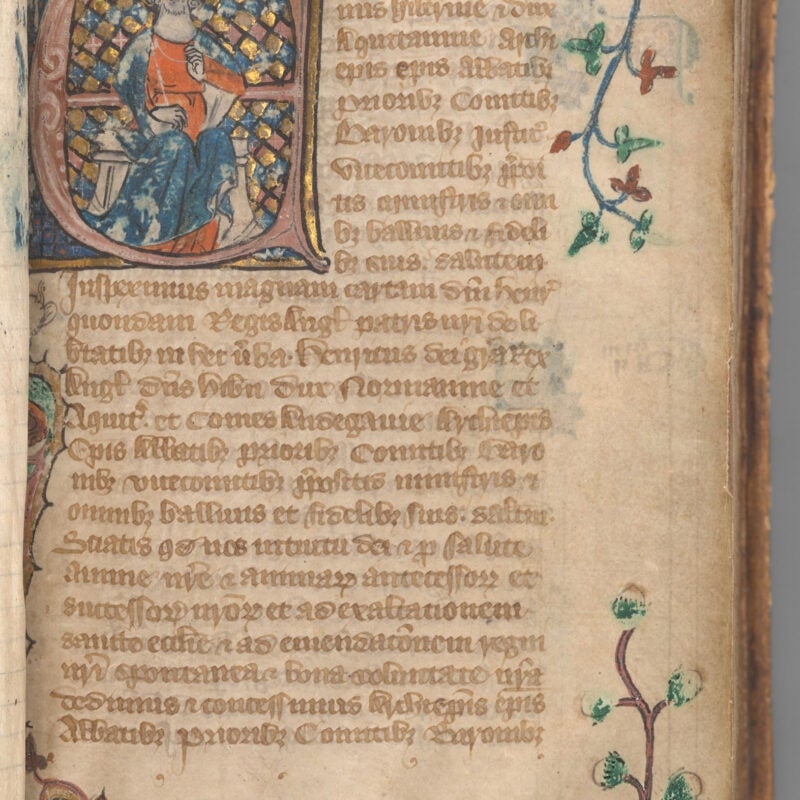 nus hibernie & dux
Aquitannie Archi
epis epis Abbatibꝫ
prioribꝫ Comitibꝫ
Baronibꝫ Justic̄
vicecomitibꝫ p̄poi
tis ministris & om
bꝫ ballius & fideli
bꝫ suis. salutem
Inspeximus magnam cartam dn̄i henr̄
quondam Regis Angl̄ patris nr̄i de li
b̄tatibꝫ in hec ūba. Henricus dei gr̄a Rex
Angl̄ dn̄s hibn̄ dux Normannie et
Aquit̄. et Comes Andegauie Archiepis
Epis Abbatibꝫ prioribꝫ Comitibꝫ Baro
nibꝫ vicecomitibꝫ p̄positis ministris &
omnibꝫ balliuis et fidelibꝫ suis. salt̄m.
Sciatis qd nos intuitu dei & p salute
anime nr̄e & animarꝝ antecessorꝝ et
successorꝝ nr̄orꝝ et ad exaltacionem
sancte eccl̄ie & ad emendac̄onem regni
nr̄i spontanea & bona voluntate nr̄a
dedimus & concessimus Archiepis epis
Abbatibꝫ prioribꝫ Comitibꝫ Baronibꝫ